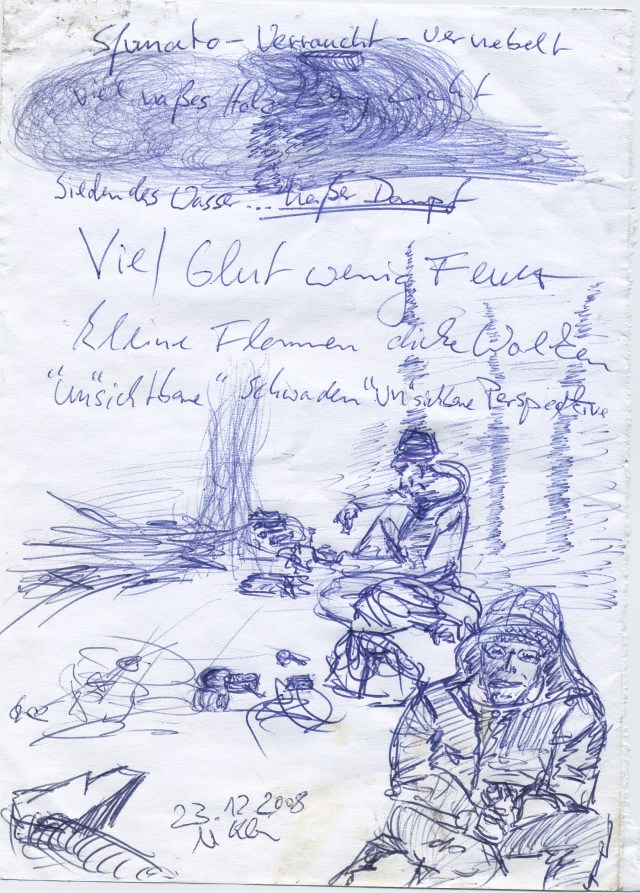 Sfumato - Verraucht - vernebelt
Viel naßes Holz wenig Licht
Siedendes Wasser ... heißer Dampf
Viel Glut wenig Feuer
kleine Flammen dicke Wolken
"Un"sichtbare Schwaden "Un"sichtbare Perspektive
23.12.2008